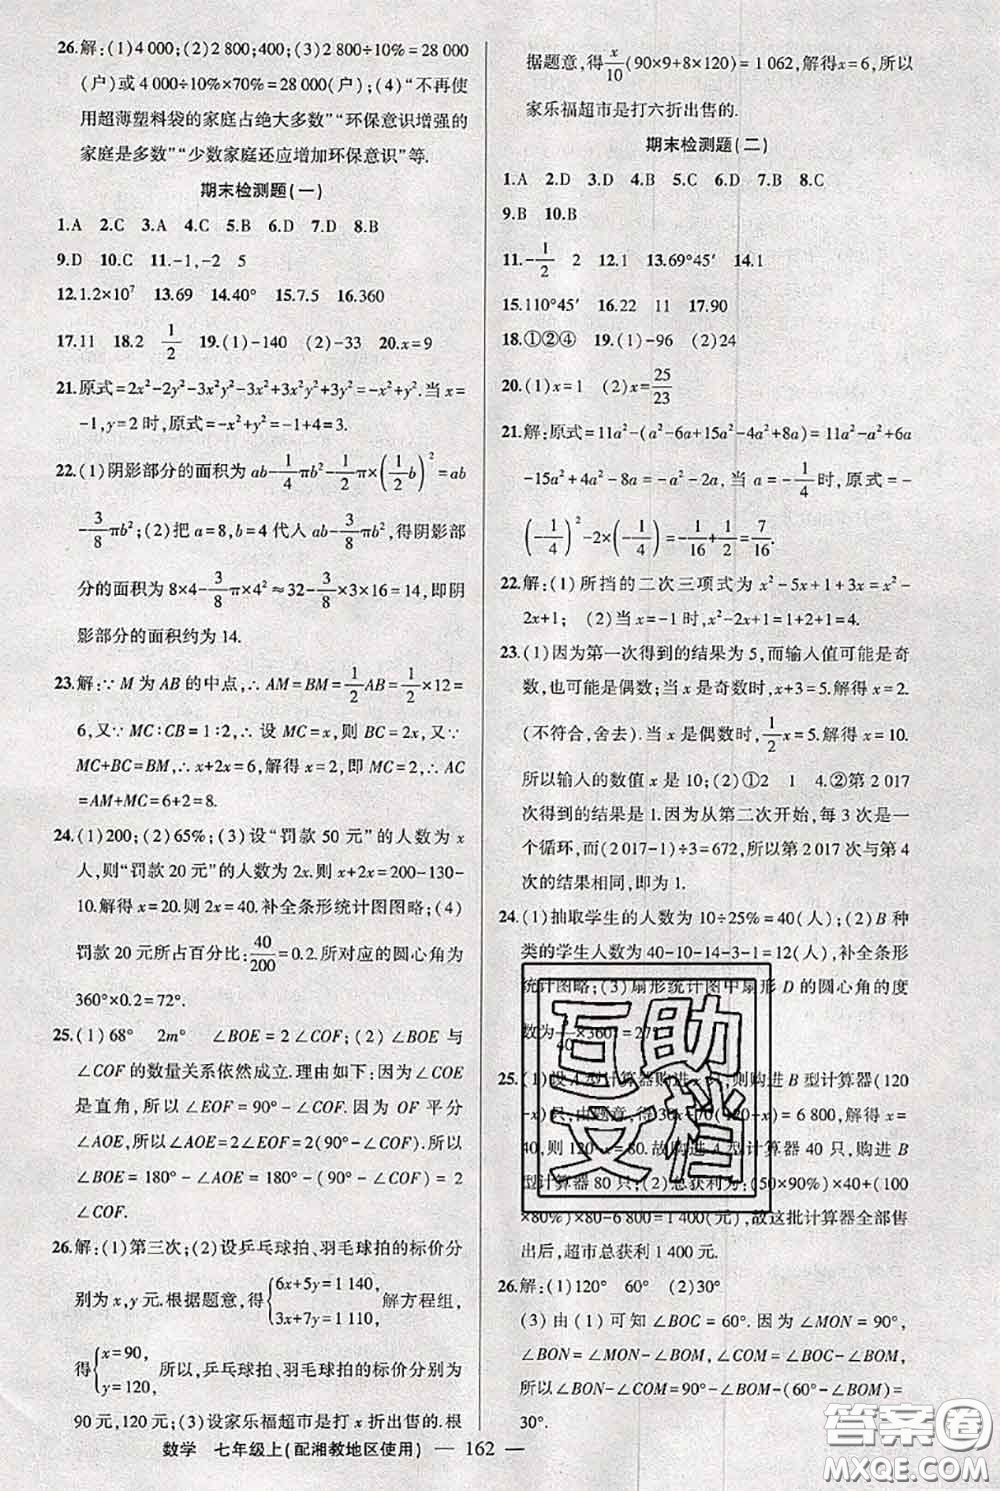 26.解:(1)4 000;(2)2 800;400;(3)2 800÷10%=28 000
(户)或 4 000÷10%×70%=28 000(户);(4)“不再使
用超薄塑料袋的家庭占绝大多数”“环保意识增强的
家庭是多数”“少数家庭还应增加环保意识”等.
期末检测题(一)
1.A 2.C 3.A 4.C 5.B 6.B 7.A 8.C
9.D 10.C 11.-1,-2 5
12.1.2×10⁷ 13.69 14.40° 15.7.5 16.360
17.11 18.2 1/2 19.(1)-140 (2)-33 20.x=9
21.原式=2x²-2y²-3x²y²-3x²+3x²y²+3y²=-x²+y².当 x=
-1,y=2时,原式=-x²+y²=-1+4=3.
22.(1)阴影部分的面积为 ab-1/4πb²-1/2π×(1/2b)²=ab
-3/8πb²;(2)把 a=8,b=4 代入 ab-3/8πb²,得阴影部
分的面积为 8×4-3/8π×4²≈32-3/8×3×16=14,即阴
影部分的面积约为 14.
23.解:∵M 为 AB 的中点,∴AM=BM=1/2AB=1/2×12=
6,又∵MC:CB=1:2,∴设 MC=x,则 BC=2x,又∵
MC+BC=BM,∴x+2x=6,解得 x=2,即 MC=2,∴AC
=AM+MC=6+2=8.
24.(1)200;(2)65%;(3)设“罚款 50 元”的人数为 x
人,则“罚款 20 元”的人数为 2x.x+2x=200-130-
10.解得 x=20,2x=40;补全条形统计图图略;(4)
罚款 20 元所占百分比:40/200=0.2.所对应的圆心角为
360°×0.2=72°.
25.(1)68° 2m° ∠BOE=2∠COF;(2)∠BOE 与
∠COF 的数量关系依然成立.理由如下:因为∠COE
是直角,所以∠EOF=90°-∠COF.因为 OF 平分
∠AOE,所以∠AOE=2∠EOF=2(90°-∠COF).所以
∠BOE=180°-∠AOE=180°-2(90°-∠COF)=2
∠COF.
26.解:(1)第三次;(2)设乒乓球拍、羽毛球拍的标价分
别为 x,y 元.根据题意,得{6x+5y=1 140,
3x+7y=1 110, 解方程组,
得{x=90,
y=120, 所以,乒乓球拍、羽毛球拍的标价分别为
90元,120元;(3)设家乐福超市是打 x 折出售的.根
据题意,得x/10(90×9+8×120)=1 062,解得x=6,所以
家乐福超市是打六折出售的.
期末检测题(二)
1.A 2.D 3.D 4.B 5.C 6.D 7.B 8.C
9.B 10.B
11.-1/2 2 12.1 13.69°45′ 14.1
15.110°45′ 16.22 11 17.90
18.①②④ 19.(1)-96 (2)24
20.(1)x=1 (2)x=25/23
21.解:原式=11a²-(a²-6a+15a²-4a²+8a)=11a²-a²+6a
-15a²+4a²-8a=-a²-2a,当 a=-1/4时,原式=-
(-1/4)²-2×(-1/4)=-1/16+1/2=7/16.
22.解:(1)所挡的二次三项式为 x²-5x+1+3x=x²-
2x+1; (2)当 x=-1 时,x²-2x+1=1+2+1=4.
23.(1)因为第一次得到的结果为 5,而输入值可能是奇
数,也可能是偶数;当 x 是奇数时,x+3=5.解得 x=2.
(不符合,舍去).当 x 是偶数时,1/2x=5.解得 x=10.
所以输入的数值 x 是 10;(2)①2 1 4.②第 2 017
次得到的结果是 1.因为从第二次开始,每 3 次是一
个循环,而(2 017-1)÷3=672,所以第 2 017 次与第 4
次的结果相同,即为 1.
24.(1)抽取学生的人数为 10÷25%=40(人);(2)B 种
类的学生人数为 40-10-14-3-1=12(人),补全条形
统计图略;(3)扇形统计图中扇形 D 的圆心角的度
数为3/40×360°=27°.
25.(1)设 A 型计算器购进 x 只,则购进 B 型计算器(120
-x)只,由题意,得 30x+70(120-x)=6 800,解得 x=
40,则 120-x=80.故购进 A 型计算器 40 只,购进 B
型计算器 80 只;(2)总获利为:(50×90%)×40+(100
×80%)×80-6 800=1 400(元),故这批计算器全部售
出后,超市总获利 1 400 元.
26.解:(1)120° 60° (2)30°
(3)由(1)可知∠BOC=60°.因为∠MON=90°,
∠BON=∠MON-∠BOM,∠COM=∠BOC-∠BOM,
所以∠BON-∠COM=90°-∠BOM-(60°-∠BOM)=
30°.
互助
文档
答案圈
MXQE.COM
数学 七年级上(配湘教地区使用) — 162 —